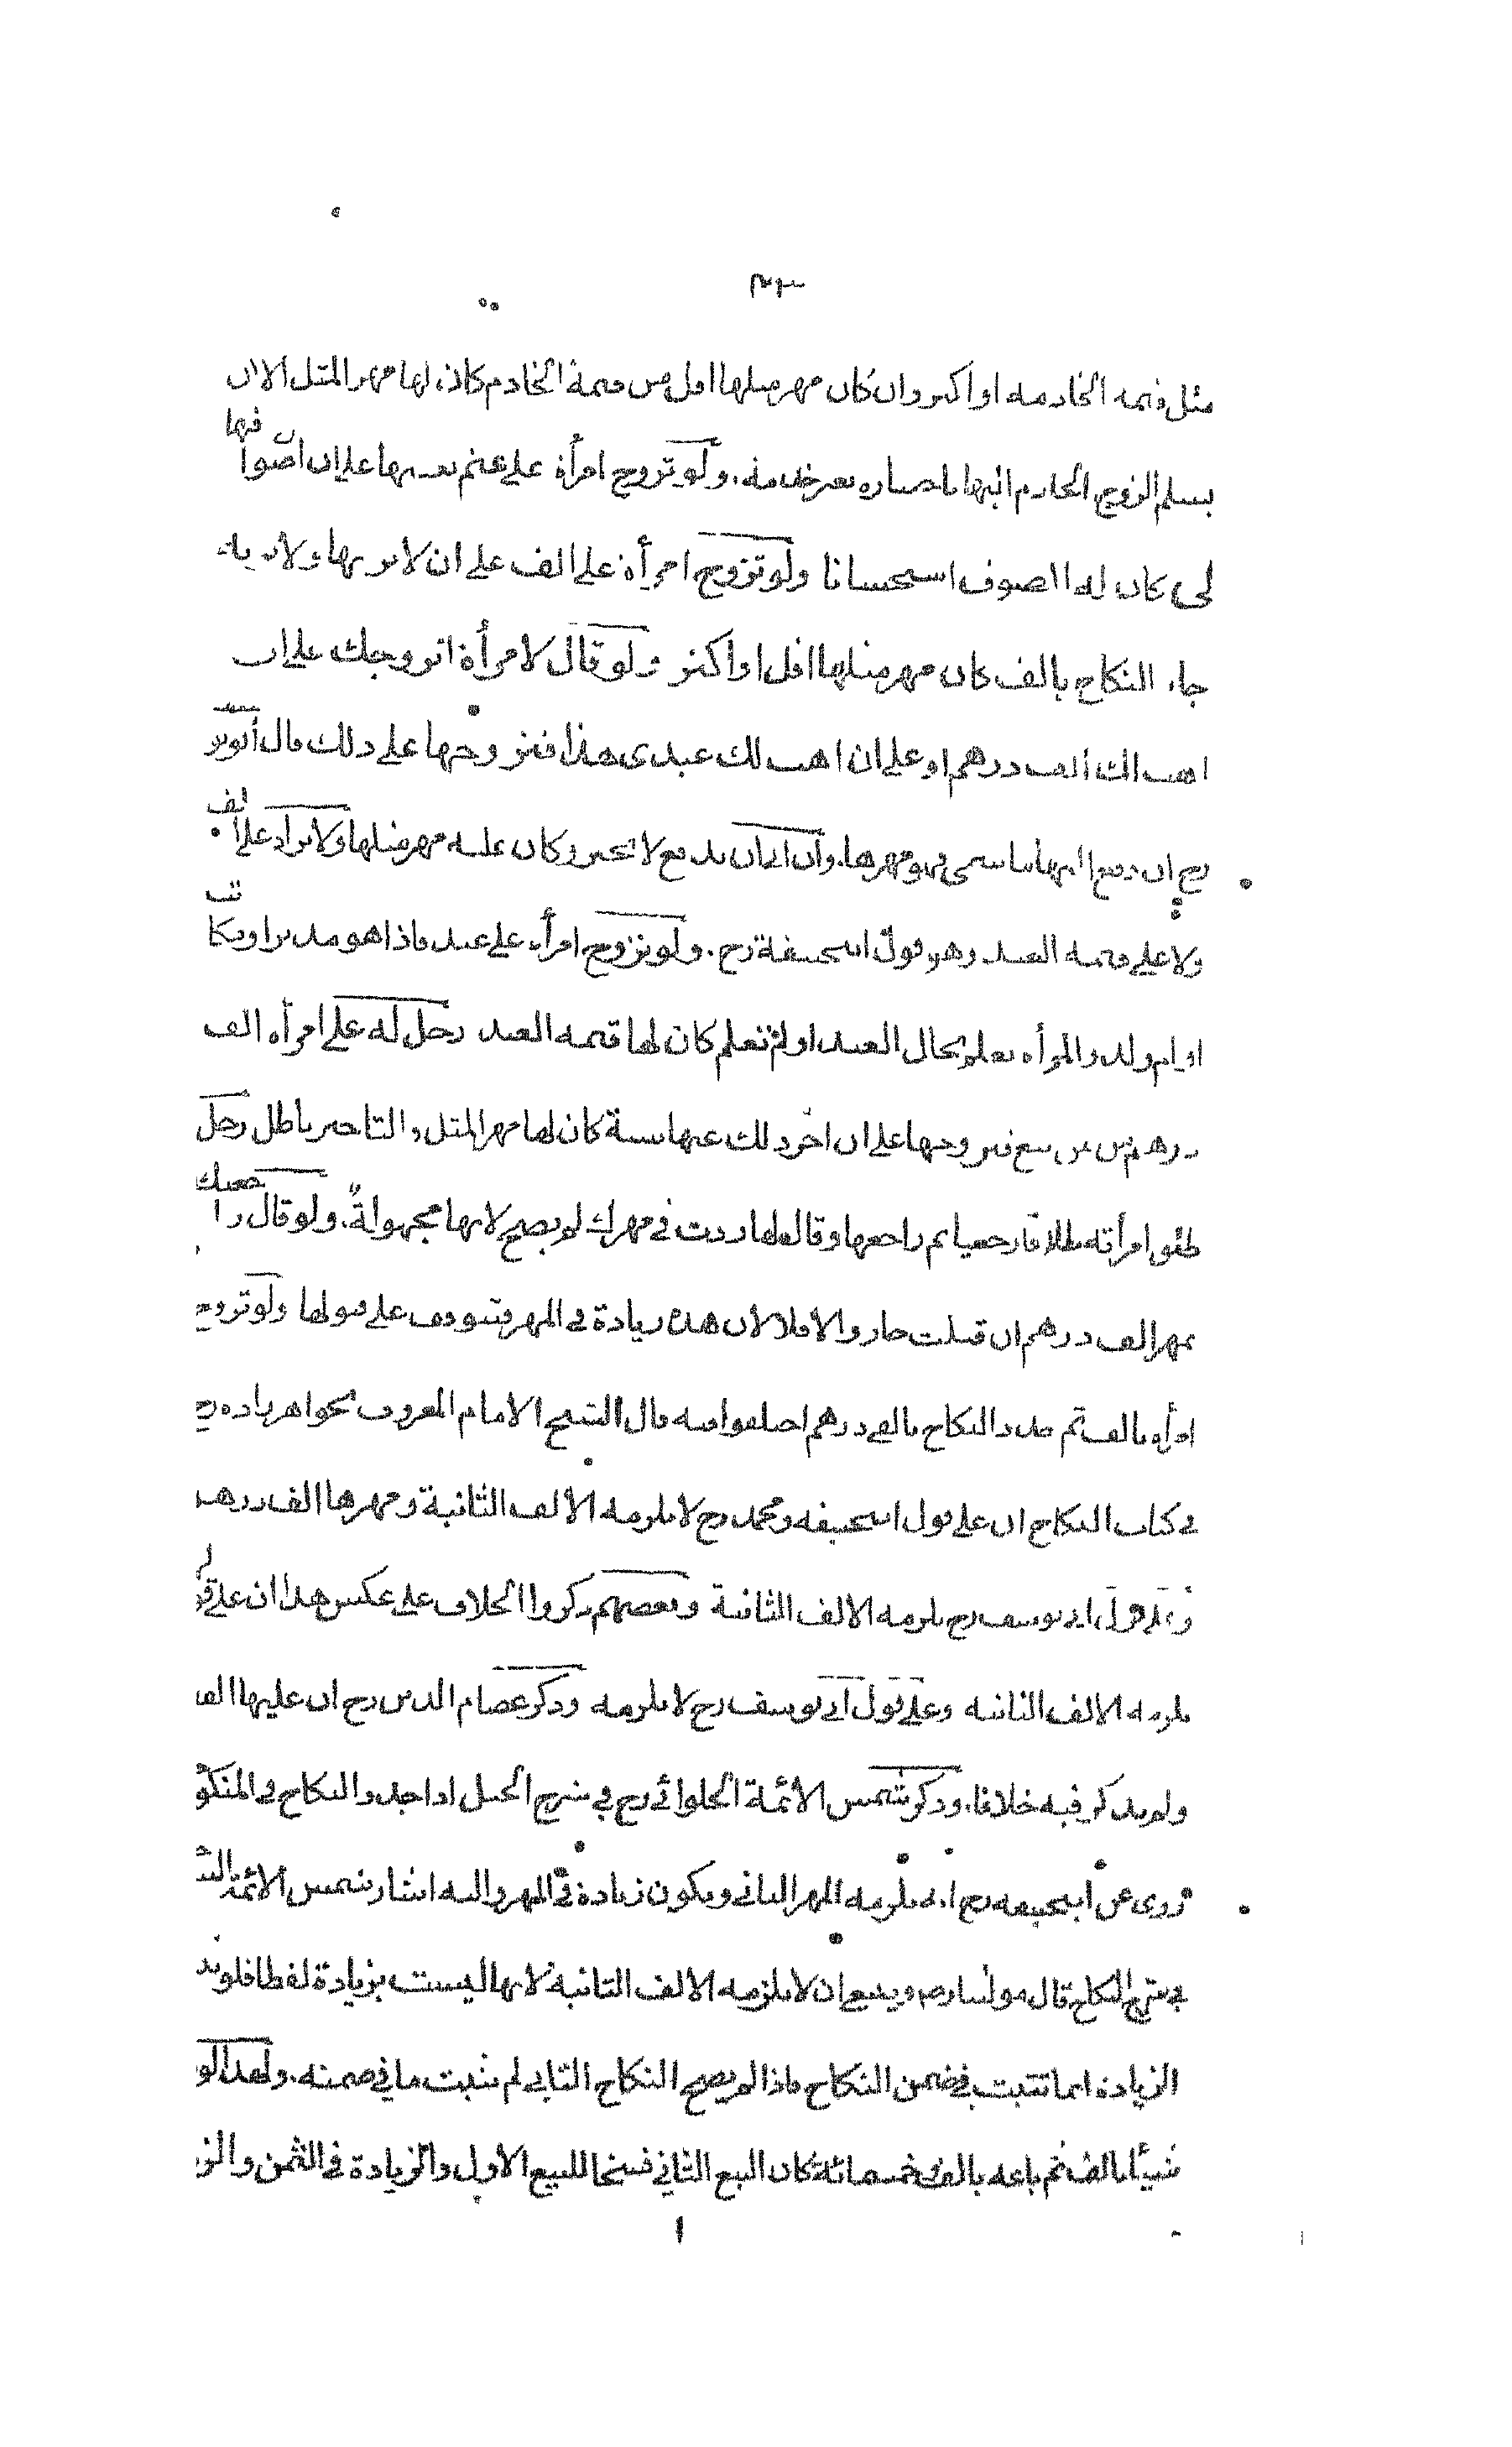 مثل قيمة الخادمة او اكثر وان كان مهر مثلها اقل من قيمة الخادم كان لها مهر المثل الا ان
يسلم الزوج الخادم اليها باختياره بغير خدمة. ولو تزوج امرأة على غنم بعينها على ان اصوافها
لي كان له الصوف استحسانا ولو تزوج امرأة على الف على ان لا يرثها ولا ترثه
جاز النكاح بالف كان مهر مثلها اقل او اكثر ولو قال لامرأة اتزوجك على ان
اهب لك الف درهم او على ان اهب لك عبدي هذا فتزوجها على ذلك قال أبو يوسف
رح ان دفع اليها ما سمى فهو مهرها. وان ابى ان يدفع لا يجبر وكان عليه مهر مثلها ولا يزاد على الف
ولا على قيمة العبد وهو قول ابيحنيفة رح. ولو تزوج امرأة على عبد فاذا هو مدبر او مكاتب
او ام ولد والمرأة تعلم بحال العبد او لم تعلم كان لها قيمة العبد رجل له على امرأة الف
درهم من ثمن بيع فتزوجها على ان اخر ذلك عنها سنة كان لها مهر المثل والتاخير باطل رجل
طلق امرأته طلاقا رجعيا ثم راجعها وقال لها زدت في مهرك لم يصح لانها مجهولة. ولو قال راجعتك
بمهر الف درهم ان قبلت جاز والا فلا لان هذه زيادة في المهر فتتوقف على قبولها ولو تزوج
امرأة بالف ثم جدد النكاح بالفي درهم اختلفوا فيه قال الشيخ الامام المعروف بخواهر زاده رح
في كتاب النكاح ان على قول ابيحنيفه ومحمد رح لا يلزمه الالف الثانية ومهرها الف درهم
وعلى قول ابي يوسف رح يلزمه الالف الثانية وبعضهم ذكروا الخلاف على عكس هذا ان على قول
يلزمه الالف الثانية وعلى قول أبي يوسف رح لا يلزمه وذكر عصام الدين رح ان عليها الف
ولم يذكر فيه خلافا. وذكر شمس الأئمة الحلوائي رح في شرح الحيل اذا جدد النكاح في المنكو
روى عن أبيحنيفه رح انه يلزمه المهر الثاني ويكون زيادة في المهر واليه اشار شمس الائمة الس
في شرح النكاح قال مولانا رح وينبغي ان لا يلزمه الالف الثانية لانها ليست بزيادة لفظا فلو ثبت
الزيادة انما تثبت في ضمن النكاح فاذا لم يصح النكاح الثاني لم يثبت ما في ضمنه. ولهذا لو
شيئا بالف ثم باعه بالف وخمسمائة كان البيع الثاني فسخا للبيع الاول والزيادة في الثمن والز